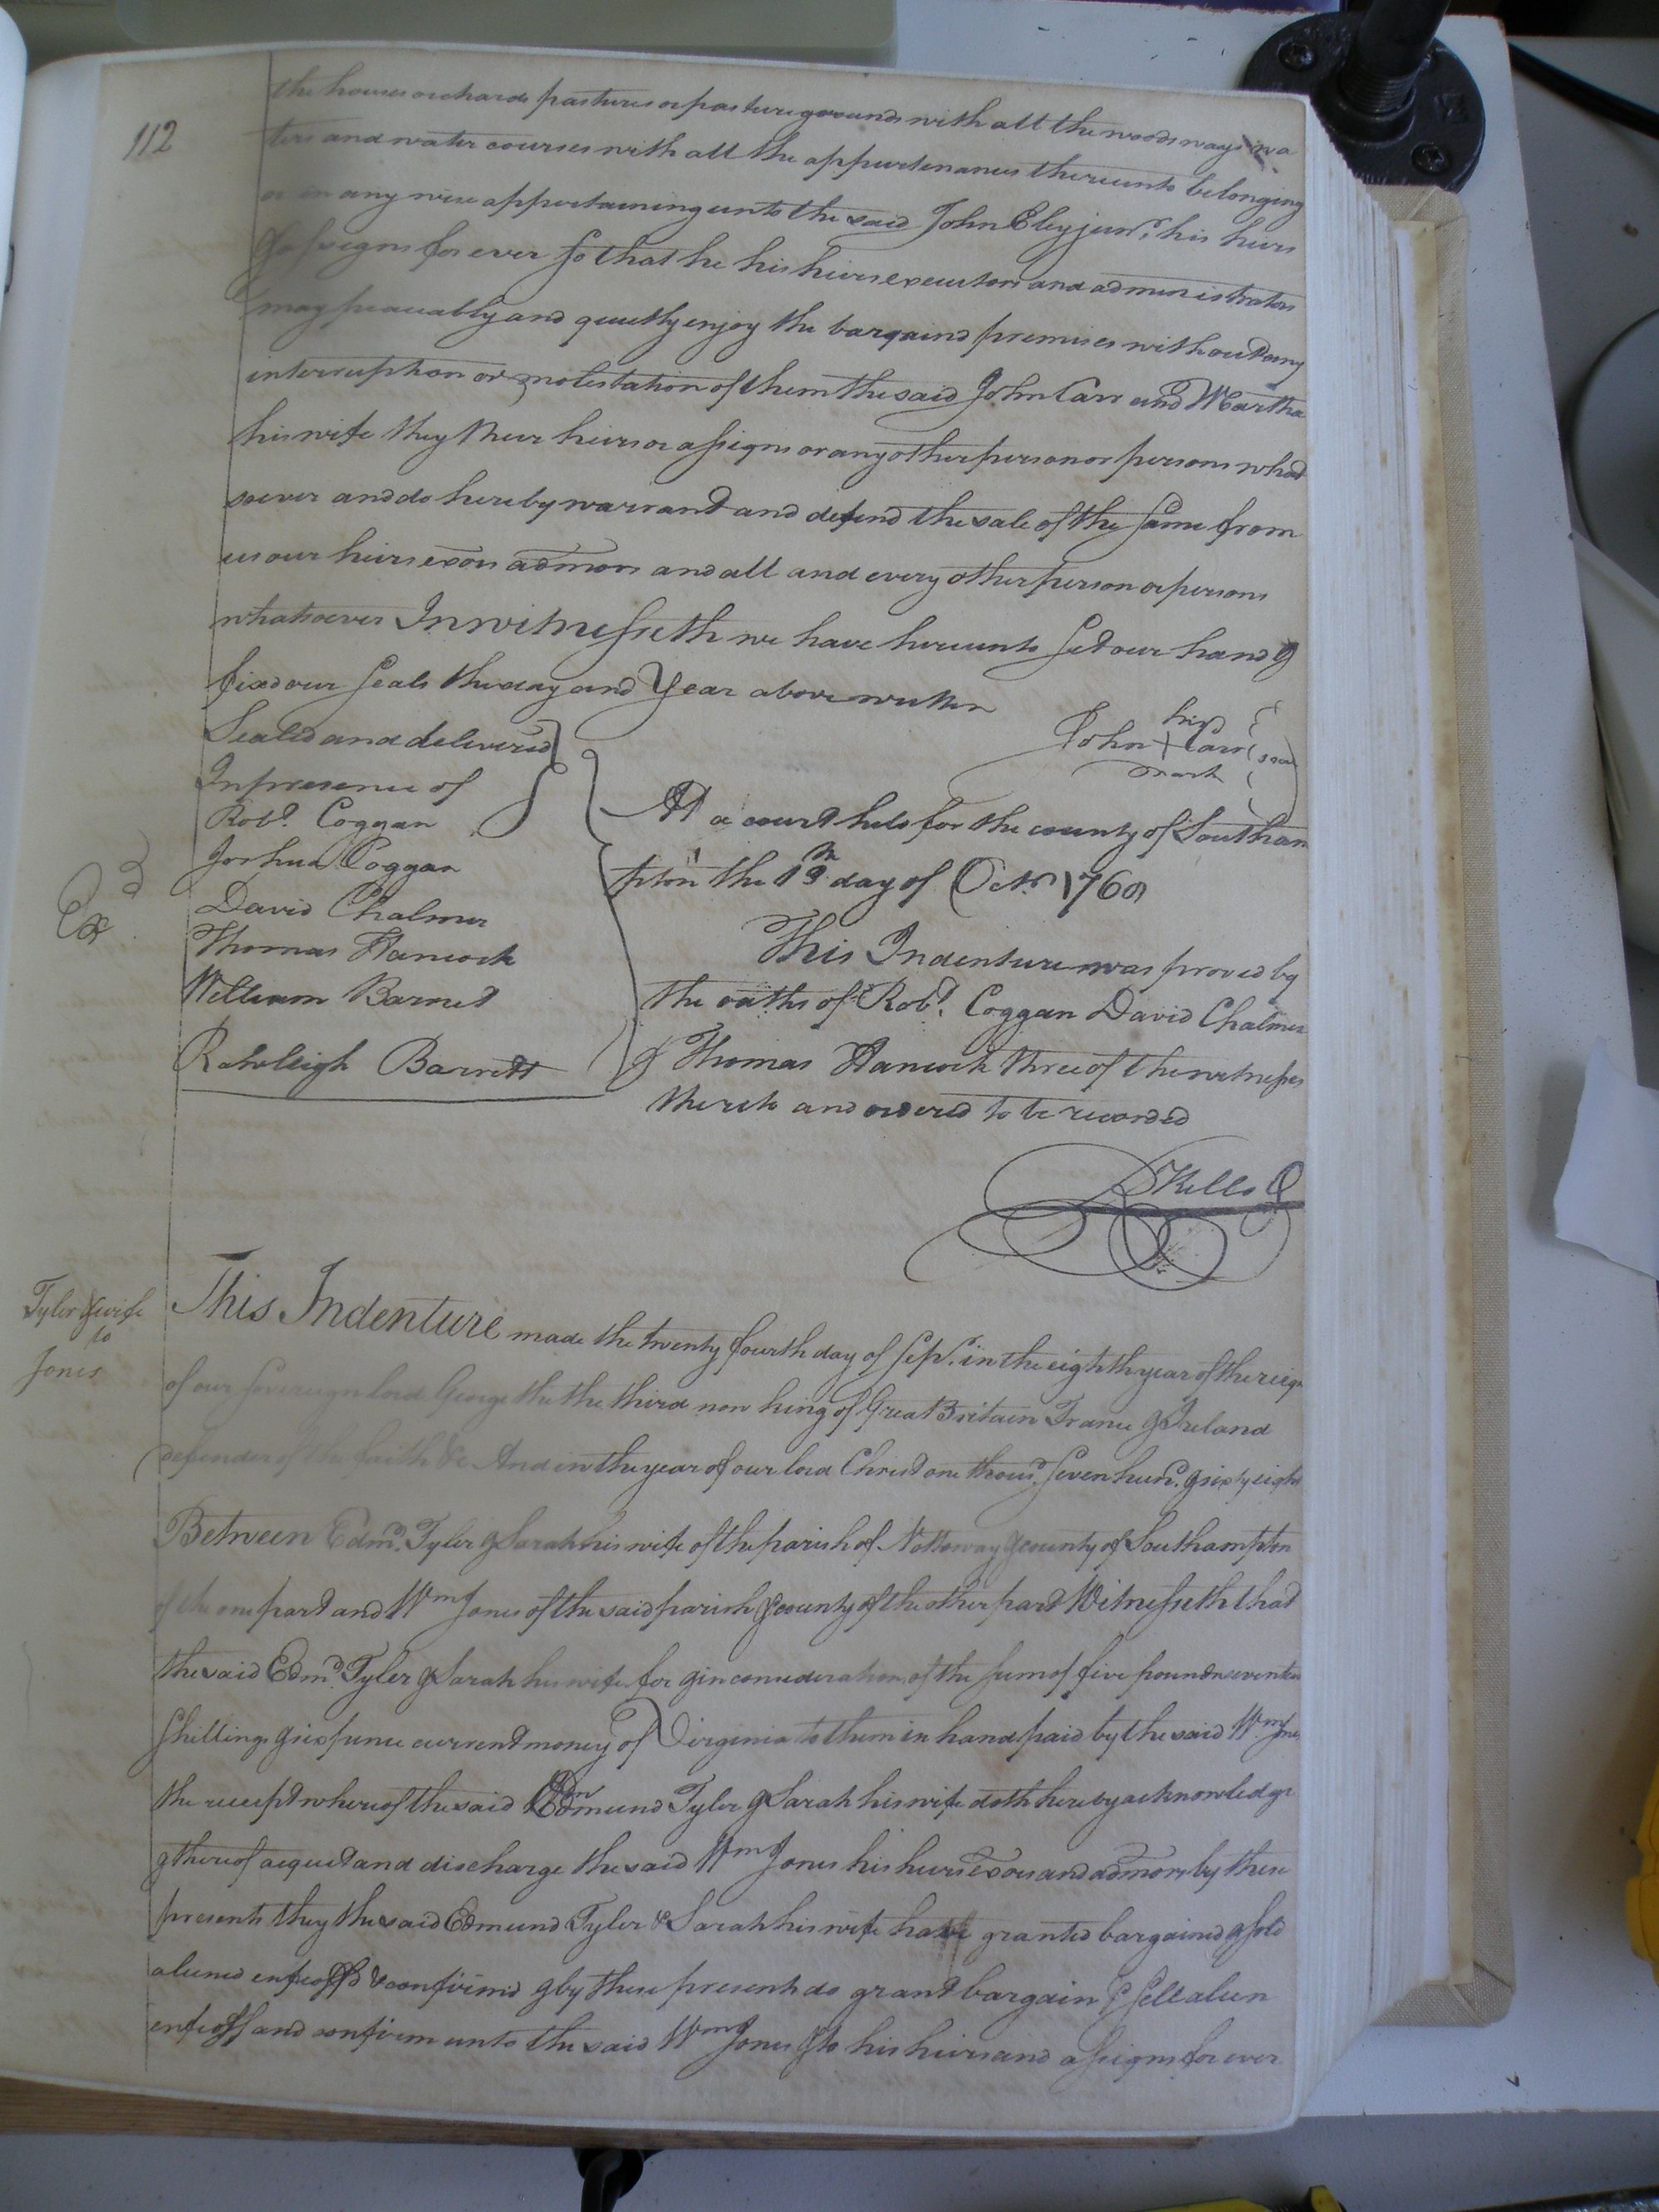 112
the houses orchards pastures or pasture grounds with all the woods ways wa
ters and water courses with all the appurtenances thereunto belonging
or in any wise appertaining unto the said John Eley junr, his heirs
& assigns for ever so that he his heirs executors and administrators
may peaceably and quietly enjoy the bargaind premises without any
interruption or molestation of them the said John Carr and Martha
his wife they their heirs or assigns or any other person or persons what
soever and do hereby warrant and defend the sale of the same from
us our heirs exors admors and all and every other person or persons
whatsoever In witnesseth we have hereunto set our hand &
fixd our seals the day and Year above written
Sealed and delivered
In presence of
Robt. Coggan
Joshua Coggan
David Chalmer
Thomas Hancock
William Barnet
Rawleigh Barnett
his
John + Carr (seal)
mark
Exd
At a court held for the county of Southam
pton the 13th day of Octr. 1768
This Indenture was proved by
the oaths of Robt. Coggan David Chalmer
& Thomas Hancock three of the witnesses
thereto and ordered to be recorded
Tyler & wife
to
Jones
This Indenture made the twenty fourth day of Sepr. in the eighth year of the reign
of our sovereign lord George the the third now king of Great Britain France & Ireland
defender of the faith &c And in the year of our lord Christ one thousd. seven hund. & sixty eight
Between Edmd. Tyler & Sarah his wife of the parish of Nottoway & county of Southampton
of the one part and Wm Jones of the said parish & county of the other part Witnesseth that
the said Edmd. Tyler & Sarah his wife for & in consideration of the sum of five pounds seventeen
shillings & six pence current money of Virginia to them in hand paid by the said Wm Jones
the receipt whereof the said Edmund Tyler & Sarah his wife doth hereby acknowledge
& thereof acquet and discharge the said Wm Jones his heirs exors and admors by these
presents they the said Edmund Tyler & Sarah his wife have granted bargained & sold
aliened enfeoffd & confirmd & by these presents do grant bargain & sell alien
enfeoff and confirm unto the said Wm Jones & to his heirs and assigns for ever